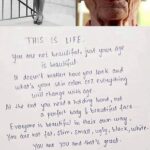 THIS IS LIFE.
you are not beautiful, just your age
is beautiful.
It doesn't matter how you look and
what's your skin color for everything
will change with age.
At the end you need a holding hand, not
a perfect body & beautiful face.
Everyone is beautiful in their own way,
You are not fat, slim, small, ugly, black, white.
You are YOU and that's great.